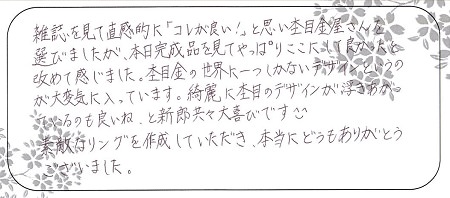 雑誌を見て直感的に「コレが良い!」と思い杢目金屋さんを
選びましたが、本日完成品を見てやっぱりここにして良かったと
改めて感じました。杢目金の世界に一つしかないデザインというの
が大変気に入っています。綺麗に杢目のデザインが浮きあがっ
ているのも良いね、と新郎共々大喜びです
素敵なリングを作成していただき、本当にどうもありがとう
ございました。